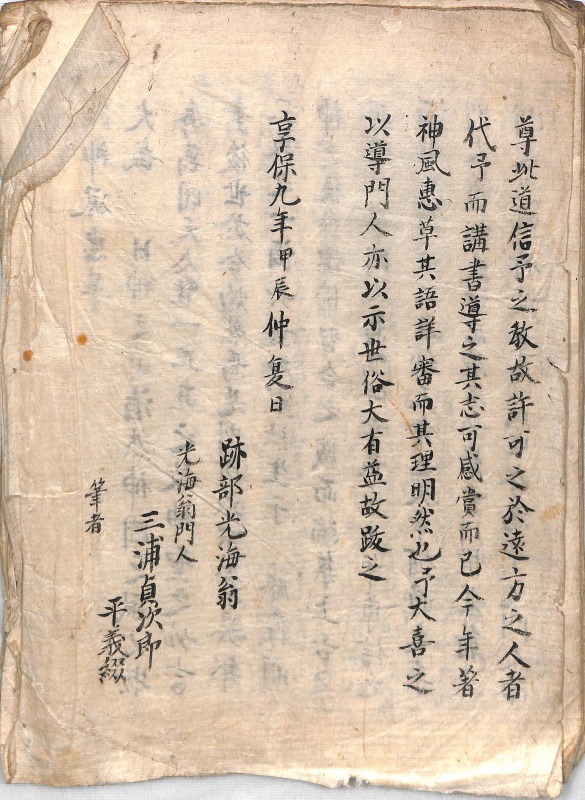 尊此道信予之教故許可之於遠方之人者
代予而講書導之其志可感賞而已今年著
神風惠草其語詳審而其理明然也予大喜之
以導門人亦以示世俗大有益故跋之
享保九年甲辰仲夏日
跡部光海翁
光海翁門人
三浦貞次郎
平義綴
筆者